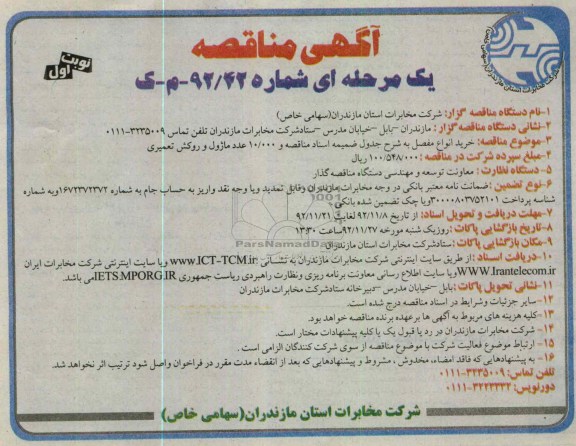 آگهی مناقصه
یک مرحله ای شماره ۹۲/۴۲-م-ک
نوبت اول
۱-نام دستگاه مناقصه گزار: شرکت مخابرات استان مازندران(سهامی خاص)
۲-نشانی دستگاه مناقصه گزار: مازندران –بابل –خیابان مدرس –ستادشرکت مخابرات مازندران تلفن تماس ۳۲۳۵۰۰۹-۰۱۱۱
۳-موضوع مناقصه: خرید انواع مفصل به شرح جدول ضمیمه اسناد مناقصه و ۱۰/۰۰۰ عدد ماژول و روکش تعمیری
۴-مبلغ سپرده شرکت در مناقصه : ۱۰۰/۵۴۸/۰۰۰ ریال
۵-دستگاه نظارت : معاونت توسعه و مهندسی دستگاه مناقصه گذار
۶-نوع تضمین :ضمانت نامه معتبر بانکی در وجه مخابرات مازندران وقابل تمدید ویا وجه نقد واریز به حساب جام به شماره ۱۶۷۲۳۷۲۳۷۲ وبه شماره
شناسه پرداخت ۳۰۰۰۰۸۰۳۷۵۲۱۰۱ ویا چک تضمین شده بانکی
۷-مهلت دریافت و تحویل اسناد: از تاریخ ۹۲/۱۱/۸ لغایت ۹۲/۱۱/۲۱
۸-تاریخ بازگشایی پاکات :روزیک شنبه مورخه ۹۲/۱۱/۲۷ ساعت ۱۳:۳۰
۹-مکان بازگشایی پاکات :ستادشرکت مخابرات استان مازندران
۱۰-دریافت اسناد :از طریق سایت اینترنتی شرکت مخابرات مازندران به نشانی :www.ICT-TCM.ir ویا سایت اینترنتی شرکت مخابرات ایران
WWW.Irantelecom.ir ویا سایت اطلاع رسانی معاونت برنامه ریزی ونظارت راهبردی ریاست جمهوری IETS.MPORG.IR می باشد.
۱۱-نشانی تحویل پاکات :بابل –خیابان مدرس –دبیرخانه ستادشرکت مخابرات مازندران
۱۲-سایر جزئیات وشرایط در اسناد مناقصه درج شده است.
۱۳-کلیه هزینه های مربوط به آگهی ها برعهده برنده مناقصه خواهد بود.
۱۴- شرکت مخابرات مازندران در رد یا قبول یک یا کلیه پیشنهادات مختار است.
۱۵- ارتباط موضوع فعالیت شرکت با موضوع مناقصه از سوی شرکت کنندگان الزامی است .
۱۶- به پیشنهادهایی که فاقد امضاء، مخدوش ، مشروط و پیشنهادهایی که بعد از انقضاء مدت مقرر در فراخوان واصل شود ترتیب اثر نخواهد شد.
تلفن تماس: ۳۲۳۵۰۰۹-۰۱۱۱
دورنویس: ۳۲۲۳۳۳۲-۰۱۱۱
شرکت مخابرات استان مازندران(سهامی خاص)